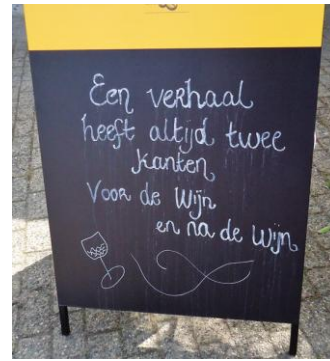 Een verhaal
heeft altijd twee
kanten
Voor de Wijn
en na de Wijn